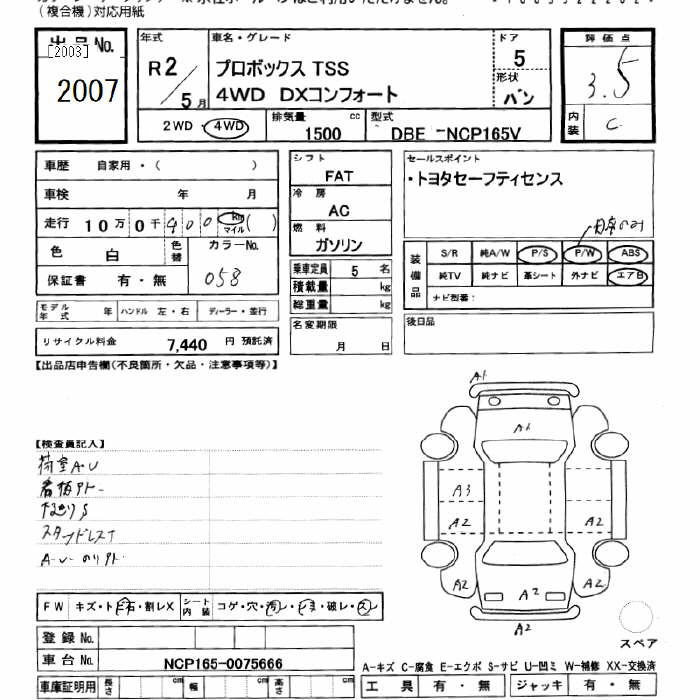 (複合機)対応用紙
出品No.
[2003]
2007
年式
R2/5月
車名・グレード
プロボックス TSS
4WD DXコンフォート
ドア
5
形状
バン
評価点
3.5
内装
C
2WD・4WD
排気量
1500 cc
型式
DBE -NCP165V
車歴 自家用・( )
車検 年 月
走行 10万0千900 km マイル ( )
色 白 色替
カラーNo.
058
保証書 有・無
モデル年式 年 ハンドル 左・右 ディーラー・並行
リサイクル料金 7,440 円 預託済
シフト
FAT
冷房
AC
燃料
ガソリン
乗車定員 5 名
積載量 kg
総重量 kg
名変期限
月 日
セールスポイント
・トヨタセーフティセンス
装備品
S/R 純A/W P/S P/W ABS
純TV 純ナビ 革シート 外ナビ エアB
ナビ型番:
後日品
【出品店申告欄(不良箇所・欠品・注意事項等)】
【検査員記入】
荷室A・U
看板アト
スタッドレス
A1
A1
A3
A2
A2
A2
A2
A2
A2
A2
スペア
FW キズ・ト 石・割レX
シート内装 コゲ・穴・汚レ・シミ・破レ・スレ
登録No.
車台No. NCP165-0075666
車庫証明用 長さ cm 幅 cm 高さ cm
A-キズ C-腐食 E-エクボ S-サビ U-凹ミ W-補修 XX-交換済
工具 有・無 ジャッキ 有・無